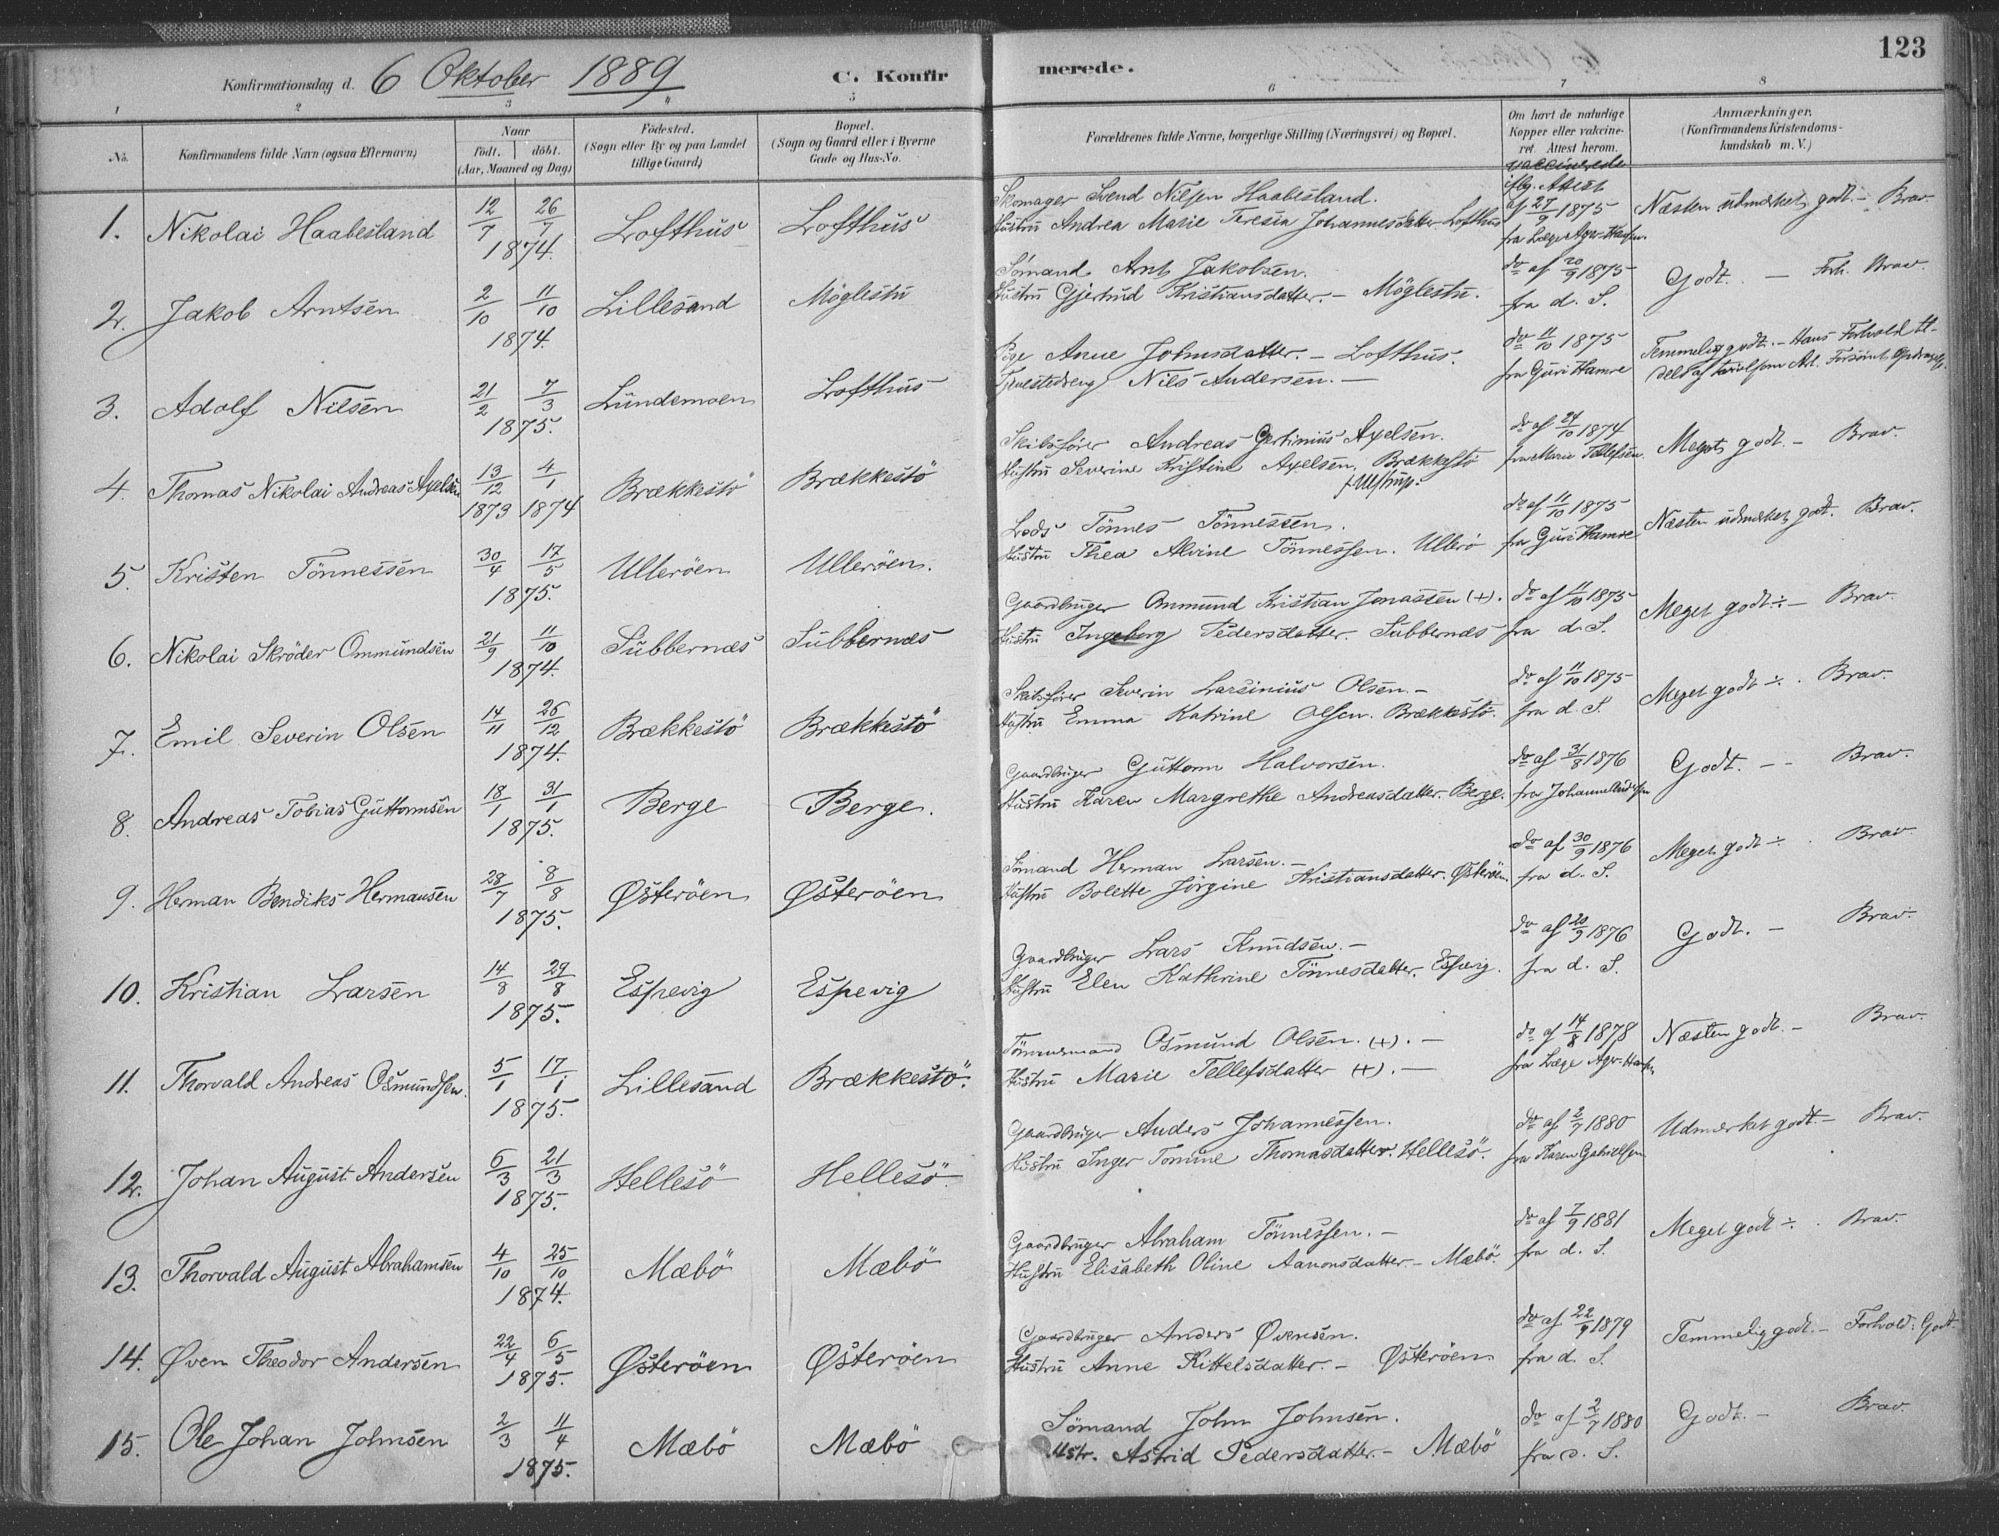 123
Konfirmationsdag d. 6 Oktober 1889 C. Konfirmerede.
1 2 3 4 5 6 7 8
No. Konfirmandens fulde Navn (ogsaa Efternavn) Naar født, døbt. (Aar, Maaned og Dag) Fødested. (Sogn eller By og paa Landet tillige Gaard) Bopæl. (Sogn og Gaard eller i Byerne Gade og Hus-No. Forældrenes fulde Navne, borgerlige Stilling (Næringsvei) og Bopæl. Om havt de naturlige Kopper eller vakcineret. Attest herom. Anmærkninger. (Konfirmandens Kristendomskundskab m. V.)
1. Nikolai Haabesland 12/7 26/7 1874. Lofthus Lofthus
Skomager Svend Nilsen Haabesland.
Hustru Andrea Marie Teresia Johannesdatter Lofthus
vaccinerede iflg. Attest af 27/9 1875 fra Læge Agr-Hansen.
Næsten udmerket godt. – Brav.
2. Jakob Arntsen 2/10 11/10 1874. Lillesand Möglestu
Sømand Arnt Jakobsen.
Hustru Gjertrud Kristiansdatter. – Möglestu.
do af 20/9 1875 fra d. S.
Godt. – Forh. Brav.
3. Adolf Nilsen 21/2 7/3 1875. Lundemoen Lofthus
Pige Anne Johnsdatter. – Lofthus.
Tjenestedreng Nils Andersen. –
do 11/10 1875 fra Guri Hamre
Temmelig godt. – Hans Forhold
4. Thomas Nikolai Andreas Axelsen 13/12 1873 4/1 1874 Brækkestö Brækkestö
Skibsfører Andreas Gertinius Axelsen.
Hustru Severine Kristine Axelsen, Brækkestö f. Ulstrup.
do af 24/10 1874 fra Marie Tellefsen
Meget godt. – Brav.
5. Kristen Tönnessen 30/4 17/5 1875. Ulleröen Ulleröen.
Lods Tönnes Tönnessen.
Hustru Thea Alvine Tönnessen. Ullerö
do af 11/10 1875 fra Guri Hamre
Næsten udmerket godt. Brav.
6. Nikolai Skröder Ommundsen 21/9 11/10 1874. Subbernæs Subbernæs
Gaardbruger Ommund Kristian Jonassen (+).
Hustru Ingeborg Pedersdatter. Subbernæs
do af 11/10 1875 fra d. S.
Meget godt ÷ – Brav.
7. Emil Severin Olsen 14/11 26/12 1874. Brækkestö Brækkestö
Skibsfører Severin Larsinius Olsen. –
Hustru Emma Katrine Olsen. Brækkestö.
do af 11/10 1875 fra d. S
Meget godt ÷. Brav.
8. Andreas Tobias Guttormsen 18/1 31/1 1875. Berge Berge.
Gaardbruger Guttorm Halvorsen.
Hustru Karen Margrethe Andreasdatter. Berge.
do af 31/8 1876 fra
Godt. – – Brav.
9. Herman Bendiks Hermansen 28/7 8/8 1875. Østeröen Østeröen
Sømand Herman Larsen. –
Hustru Bolette Jörgine Kristiansdatter. Østeröen.
do af 30/9 1876 fra d. S.
Meget godt ÷. Brav.
10. Kristian Larsen 14/8 29/8 1875. Espevig Espevig
Gaardbruger Lars Knudsen. –
Hustru Elen Kathrine Tönnesdatter. Espevig.
do af 20/9 1876 fra d. S.
Godt. – Brav.
11. Thorvald Andreas Osmundsen. 5/1 17/1 1875. Lillesand Brækkestö.
Tömmermand Osmund Olsen. (+). –
Hustru Marie Tellefsdatter (+). –
do af 14/8 1878 fra Læge Agr-Hansen
Næsten godt. – Brav.
12. Johan August Andersen 6/3 21/3 1875. Hellesö Hellesö
Gaardbruger Anders Johannessen.
Hustru Inger Tomine Thomasdatter. Hellesö.
do af 2/7 1880 fra Karen Gabrielsen
Udmerket godt. – Brav.
13. Thorvald August Abrahamsen 4/10 25/10 1874. Mæbö Mæbö
Gaardbruger Abraham Tönnessen. –
Hustru Elisabeth Oline Aanonsdatter – Mæbö.
do af 7/9 1881 fra d. S.
Meget godt ÷. Brav.
14. Øven Theodor Andersen 22/4 6/5 1875. Østeröen Østeröen
Gaardbruger Anders Øvensen.
Hustru Anne Kittelsdatter. – Østeröen
do af 22/9 1879 fra d. S.
Temmelig godt. – Forhold: Godt.
15. Ole Johan Johnsen 2/3 11/4 1875. Mæbö Mæbö
Sömand John Johnsen.
Hustr. Astrid Pedersdatter. – Mæbö
do af 2/7 1880 fra d. S.
Godt. – Brav.